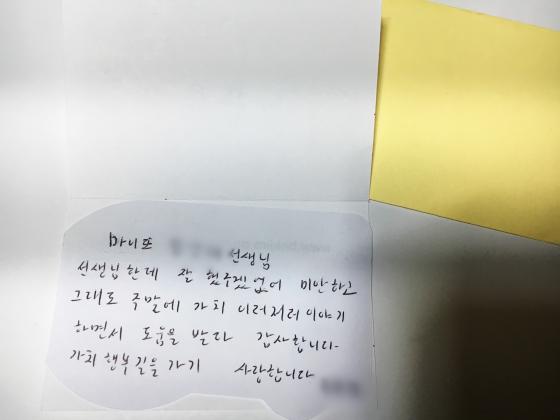 마이뜨 선생님
선생님한데 잘 했주겠없어 미안하고
그래도 주말에 가치 이러저러 이야기
하면서 도움을 발다 감사합니다
가치 행부길을 가기 사랑합니다